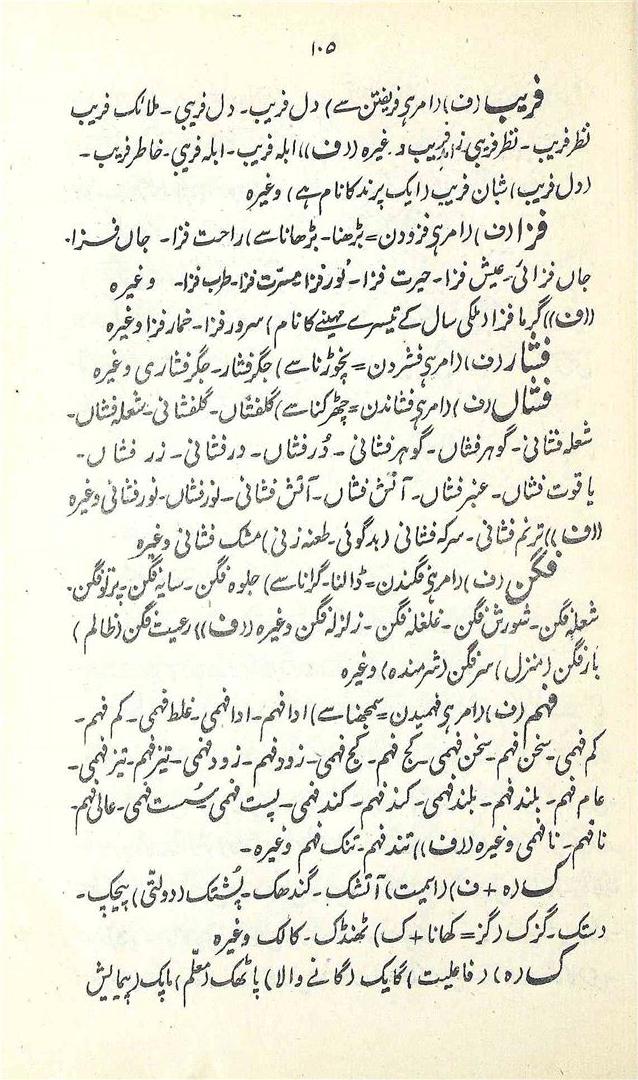 ۱۰۵
فریب (ف) (امر ہی فریفتن سے) دل فریب۔ دل فریبی۔ ملائک فریب
نظر فریب۔ نظر فریبی۔ فریب وغیرہ ((ف)) ابلہ فریب۔ ابلہ فریبی۔ خاطر فریب۔
(دل فریب) شان فریب (ایک پرند کا نام ہے) وغیرہ
فزا (ف) (امر ہی فزودن = بڑھنا۔ بڑھانا سے) راحت فزا۔ جاں فزا۔
جاں فزائی۔ عیش فزا۔ حیرت فزا۔ نور فزا مسرت فزا۔ طرب فزا۔ وغیرہ
((ف)) گرما فزا (ملکی سال کے تیسرے مہینے کا نام) سرور فزا۔ خمار فزا وغیرہ
فشار (ف) (امر ہی فشردن = نچوڑنا سے) جگر فشار۔ جگر فشاری وغیرہ
فشاں (ف) (امر ہی فشاندن = چھڑکنا سے) گلفشاں۔ گلفشانی۔ شعلہ فشاں۔
شعلہ فشانی۔ گوہر فشاں۔ گوہر فشانی۔ دُر فشاں۔ در فشانی۔ زر فشاں۔
یاقوت فشاں۔ عنبر فشاں۔ آتش فشاں۔ آتش فشانی۔ نور فشاں۔ نور فشانی وغیرہ
((ف)) ترنم فشانی۔ سرکہ فشانی (بدگوئی۔ طعنہ زنی) مشک فشانی وغیرہ
فگن (ف) (امر ہی فگندن = ڈالنا۔ گرانا سے) جلوہ فگن۔ سایہ فگن۔ پرتو فگن۔
شعلہ فگن۔ شورش فگن۔ غلغلہ فگن۔ زلزلہ فگن وغیرہ ((ف)) رعیت فگن (ظالم)
بار فگن (منزل) سر فگن (شرمندہ) وغیرہ
فہم (ف) (امر ہی فہمیدن = سمجھنا سے) ادا فہم۔ ادا فہمی۔ غلط فہمی۔ کم فہم۔
کم فہمی۔ سخن فہم۔ سخن فہمی۔ کج فہم۔ کج فہمی۔ زود فہم۔ زود فہمی۔ تیز فہم۔ تیز فہمی۔
عام فہم۔ بلند فہم۔ بلند فہمی۔ کند فہم۔ کند فہمی۔ پست فہمی۔ سُست فہمی۔ عالی فہم۔
نا فہم۔ نا فہمی وغیرہ ((ف)) تند فہم۔ تنک فہم وغیرہ۔
ک (ہ + ف) (اسمیت) آتشک۔ گندھک۔ پُشتک (دولتی) پیچک۔
دستک۔ گزک (گز = کھانا + ک) ٹھنڈک۔ کالک وغیرہ
ک (ہ) (فاعلیت) گایک (گانے والا) پاٹھک (معلّم) ماپک (پیمایش